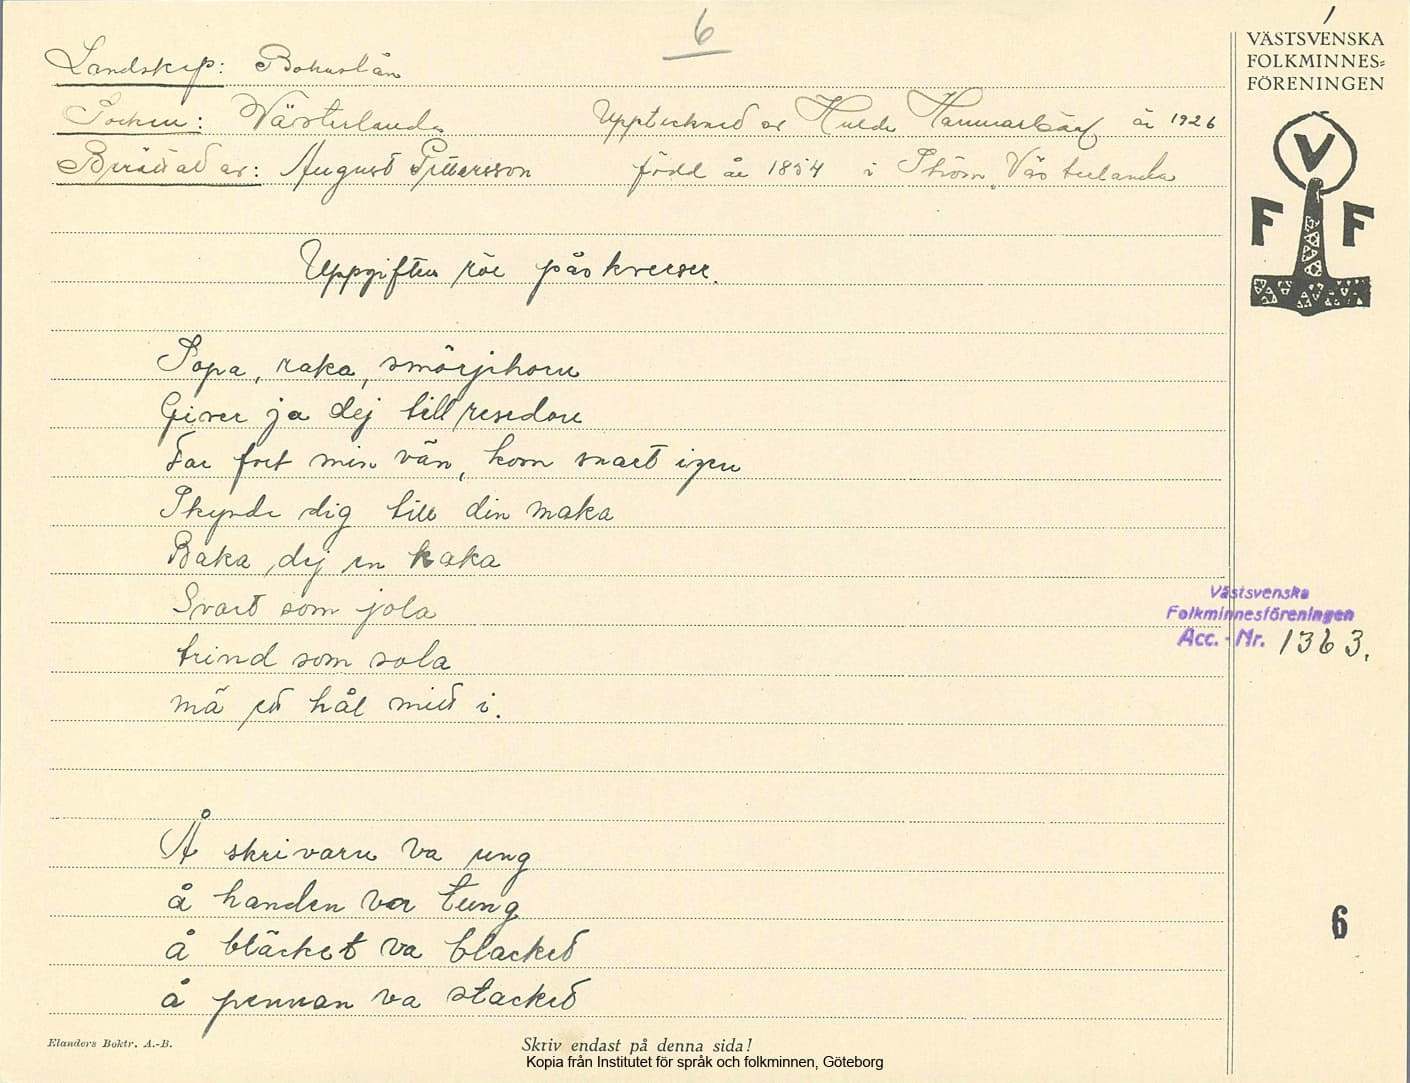 6
1
VÄSTSVENSKA
FOLKMINNES=
FÖRENINGEN
V
F F
Landskap: Bohuslän
Socken: Västerlanda Upptecknad av Hulda Hammarbäck år 1926
Berättad av: August Pettersson född år 1854 i Ström, Västerlanda
Uppgiften rör påskverser.
Sopa, raka, smörjihorn
Giver ja dej till resedon
Far fort min vän, kom snart igen
Skynda dig till din maka
Baka dej en kaka
Svart som jola
trind som sola
mä ett hål mitt i.
Västsvenska
Folkminnesföreningen
Acc. - Nr. 1363.
Å skrivarn va ung
å handen var tung
å bläcket va blacket
å pennan va stacket
6
Elanders Boktr. A.-B.
Skriv endast på denna sida!
Kopia från Institutet för språk och folkminnen, Göteborg